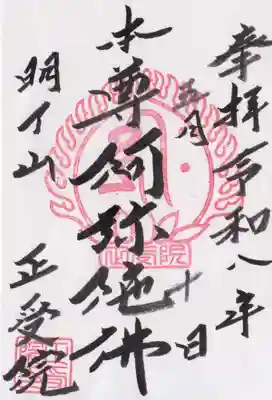 奉拝 令和八年
五月 十日
本尊 阿弥陀佛
明了山
正受院